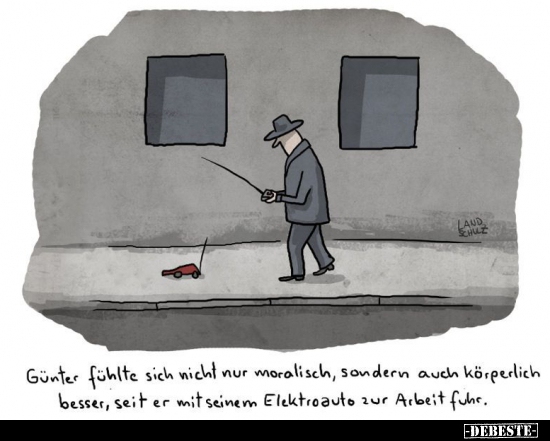 LAND
SCHULZ
Günter fühlte sich nicht nur moralisch, sondern auch körperlich
besser, seit er mit seinem Elektroauto zur Arbeit fuhr.
-DEBESTE-